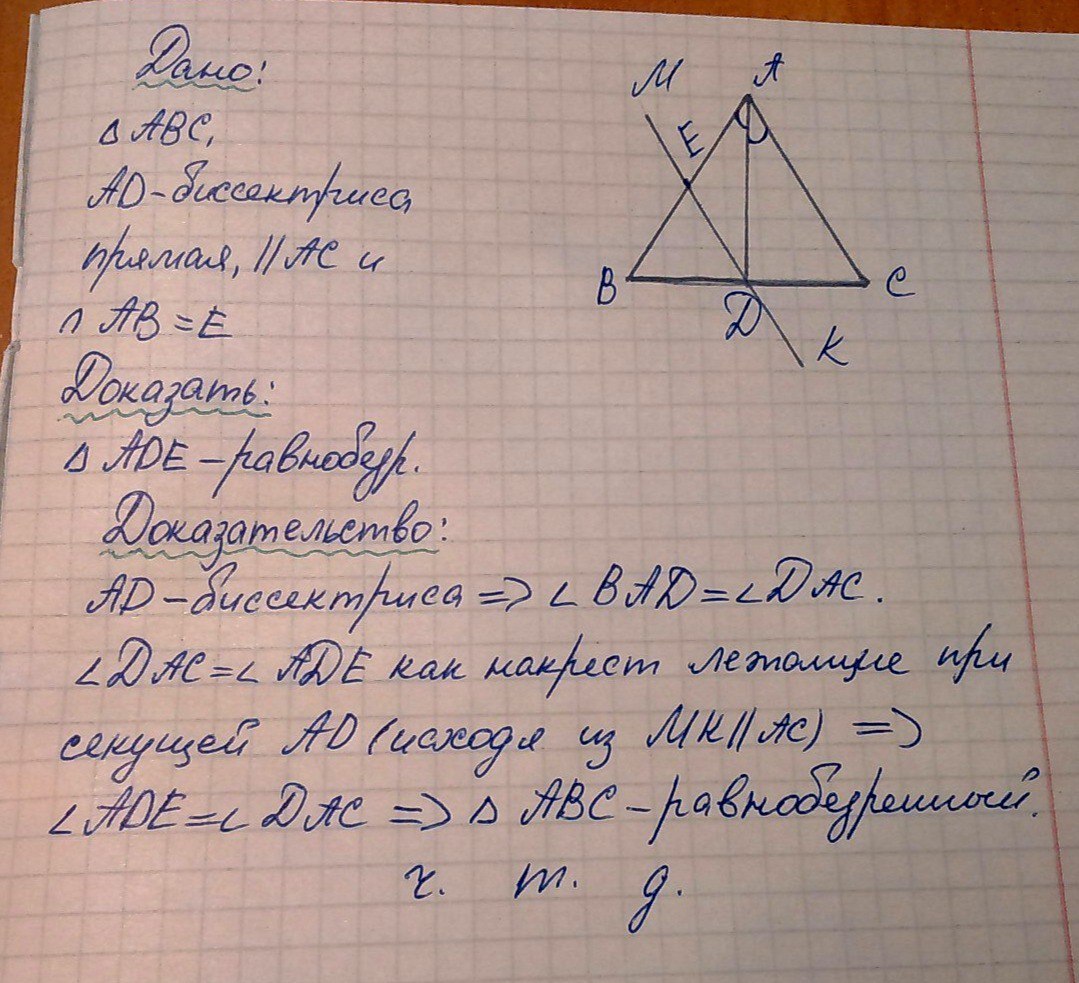 Дано:
△ ABC,
AD - биссектриса
прямая, || AC и
∩ AB = E
Доказать:
△ ADE - равнобедр.
Доказательство:
AD - биссектриса => ∠ BAD = ∠ DAC.
∠ DAC = ∠ ADE как накрест лежащие при
секущей AD (исходя из MK || AC) =>
∠ ADE = ∠ DAC => △ ABC - равнобедренный.
ч. т. д.
M
A
E
B
D
C
K